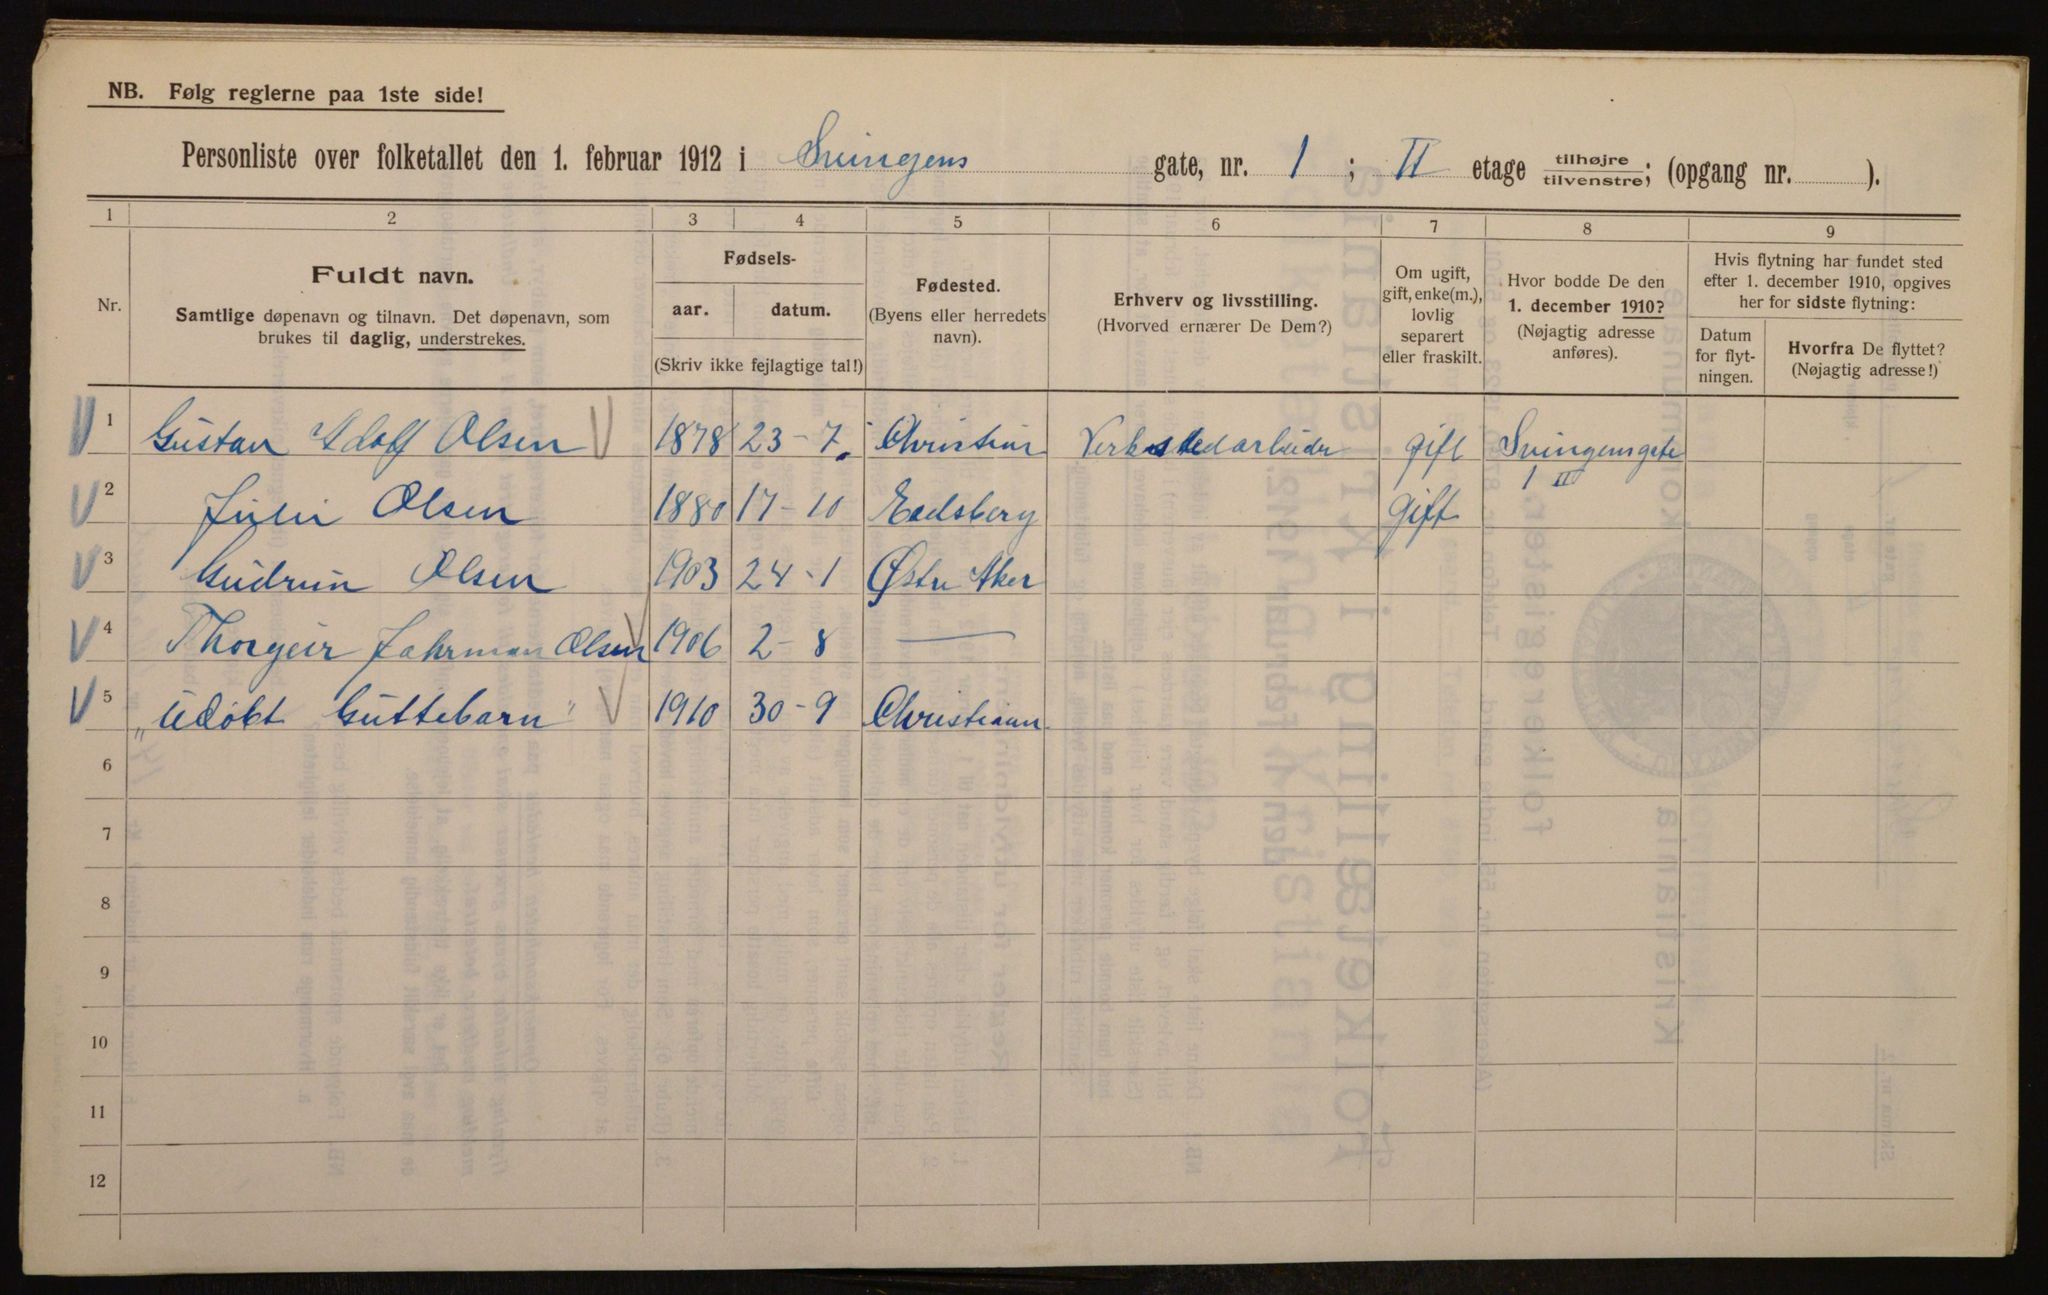 NB. Følg reglerne paa 1ste side!
Personliste over folketallet den 1. februar 1912 i Svingens gate, nr. 1 ; II etage tilhøjre/tilvenstre; (opgang nr. ).
1 2 3 4 5 6 7 8 9
Nr.
Fuldt navn.
Samtlige døpenavn og tilnavn. Det døpenavn, som
brukes til daglig, understrekes.
Fødsels-
aar. datum.
(Skriv ikke fejlagtige tal!)
Fødested.
(Byens eller herredets
navn).
Erhverv og livsstilling.
(Hvorved ernærer De Dem?)
Om ugift,
gift, enke(m.),
lovlig
separert
eller fraskilt.
Hvor bodde De den
1. december 1910?
(Nøjagtig adresse
anføres).
Hvis flytning har fundet sted
efter 1. december 1910, opgives
her for sidste flytning:
Datum
for flyt-
ningen.
Hvorfra De flyttet?
(Nøjagtig adresse!)
1 Gustav Adolf Olsen 1878 23-7. Christian Verkstedarbeider gift Svingensgate
1 II
2 Julie Olsen 1880 17-10 Eidsberg gift
3 Gudrun Olsen 1903 24-1 Østre Aker
4 Thorgeir Olsen 1906 2-8 —
5 „Udøbt Guttebarn" 1910 30-9 Christiania
6
7
8
9
10
11
12